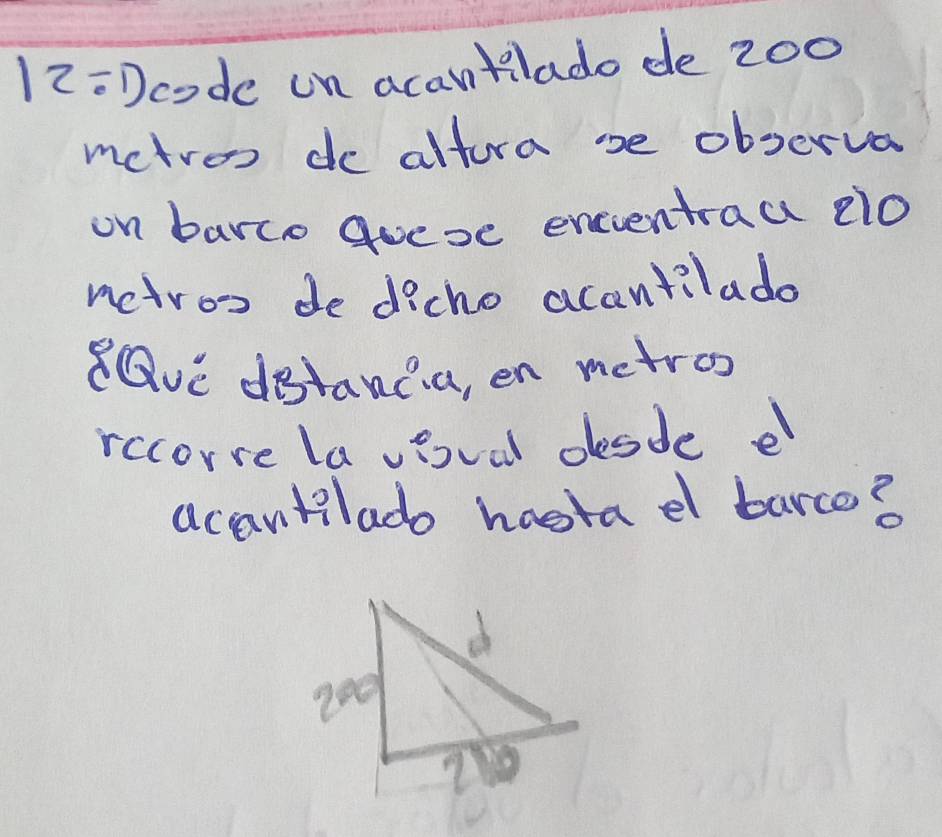 12=Desde un acantilado de 200
metros de altura se observa
un barco que se encuentra a 210
metros de dicho acantilado
¿Qué distancia, en metros
recorre la visual desde el
acantilado hasta el barco?
d
200
210